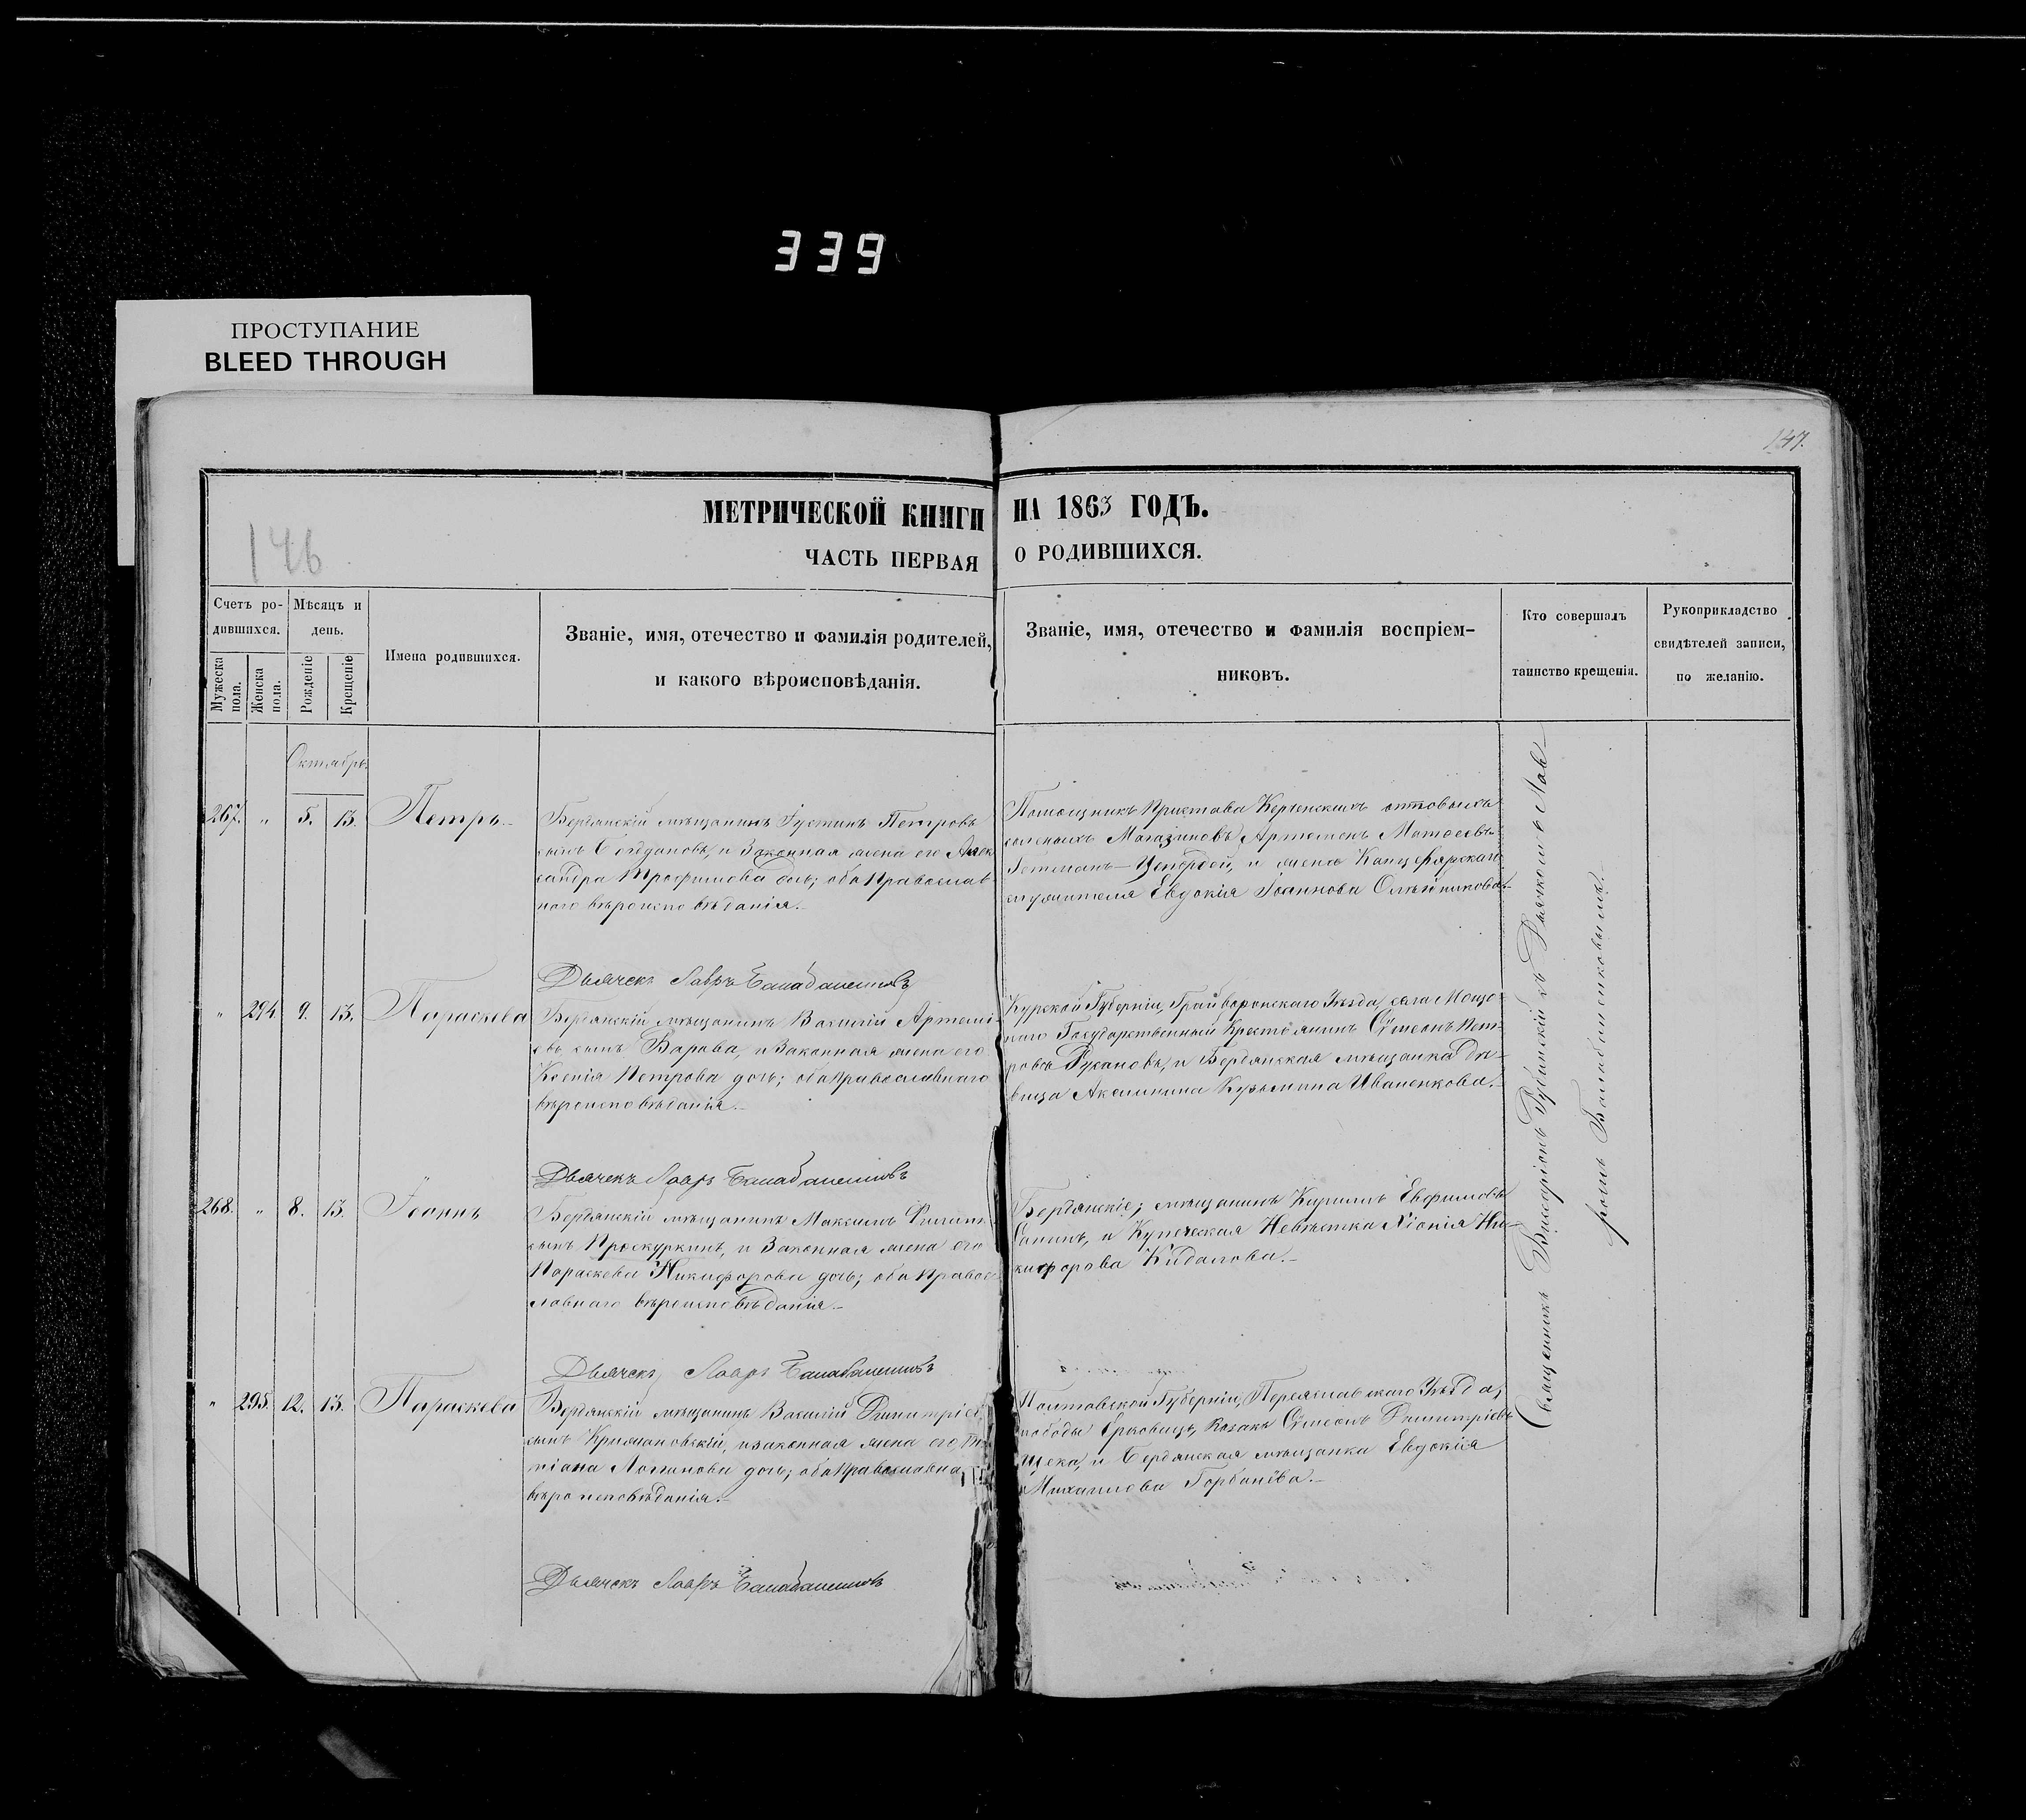 339
ПРОСТУПАНИЕ
BLEED THROUGH
147.
146
МЕТРИЧЕСКОЙ КНИГИ НА 1863 ГОДЪ.
ЧАСТЬ ПЕРВАЯ О РОДИВШИХСЯ.
Счетъ ро-
дившихся.
Мужеска пола.
Женска пола.
Мѣсяцъ и
день.
Рожденіе
Крещеніе
Имена родившихся.
Званіе, имя, отечество и фамилія родителей,
и какого вѣроисповѣданія.
Званіе, имя, отечество и фамилія воспріем-
никовъ.
Кто совершалъ
таинство крещенія.
Рукоприкладство
свидѣтелей записи,
по желанію.
Октябрь
267. " 5. 13. Петръ
Бердянскій мѣщанинъ Іустинъ Петровъ
сынъ Богдановъ, и Законная жена его Алек-
сандра Трофимова дочь; оба Православ-
наго вѣроисповѣданія.
Помощникъ Пристава Керченскихъ оптовыхъ
соленыхъ Магазиновъ Артемонъ Матѳеевъ
Гетманъ, и жена Канцелярскаго
служителя Евдокія Іоаннова Олейникова.
Дьячекъ Лавръ Балабаненковъ
" 294 9. 13. Параскева
Бердянскій мѣщанинъ Василій Артемі-
евъ сынъ Варава, и Законная жена его
Ксенія Петрова дочь; оба Православнаго
вѣроисповѣданія.
Курской Губерніи, Грайворонскаго Уѣзда, села Мощо-
наго Государственный Крестьянинъ Сѵмеонъ Пет-
ровъ Русановъ, и Бердянская мѣщанка Дѣ-
вица Акилина Кузьмина Иваненкова.
Дьячекъ Лавръ Балабаненковъ
268. " 8. 13. Іоаннъ
Бердянскій мѣщанинъ Максимъ Филип.
сынъ Проскуркинъ, и Законная жена его
Параскева Никифорова дочь; оба Правос-
лавнаго вѣроисповѣданія.
Бердянскіе; мѣщанинъ Кирилъ Евфимовъ
и Купеческая Невѣстка Хіонія Ни-
кифорова Кидалова.
Дьячекъ Лавръ Балабаненковъ
" 295. 12. 13. Параскева
Бердянскій мѣщанинъ Василій Димитріев
сынъ Крижановскій, и законная жена его, Та-
тіана Логинова дочь; оба Православна
вѣроисповѣданія.
Полтавской Губерніи, Переяславскаго Уѣзда,
слободы Ерковецъ, Козакъ Сѵмеонъ Димитріевъ
и Бердянская мѣщанка Евдокія
Михаилова Горбанёва.
Дьячекъ Лавръ Балабаненковъ
Священникъ Виссаріонъ Рубанскій съ Дьячкомъ Лав-
ромъ Балабаненковымъ.